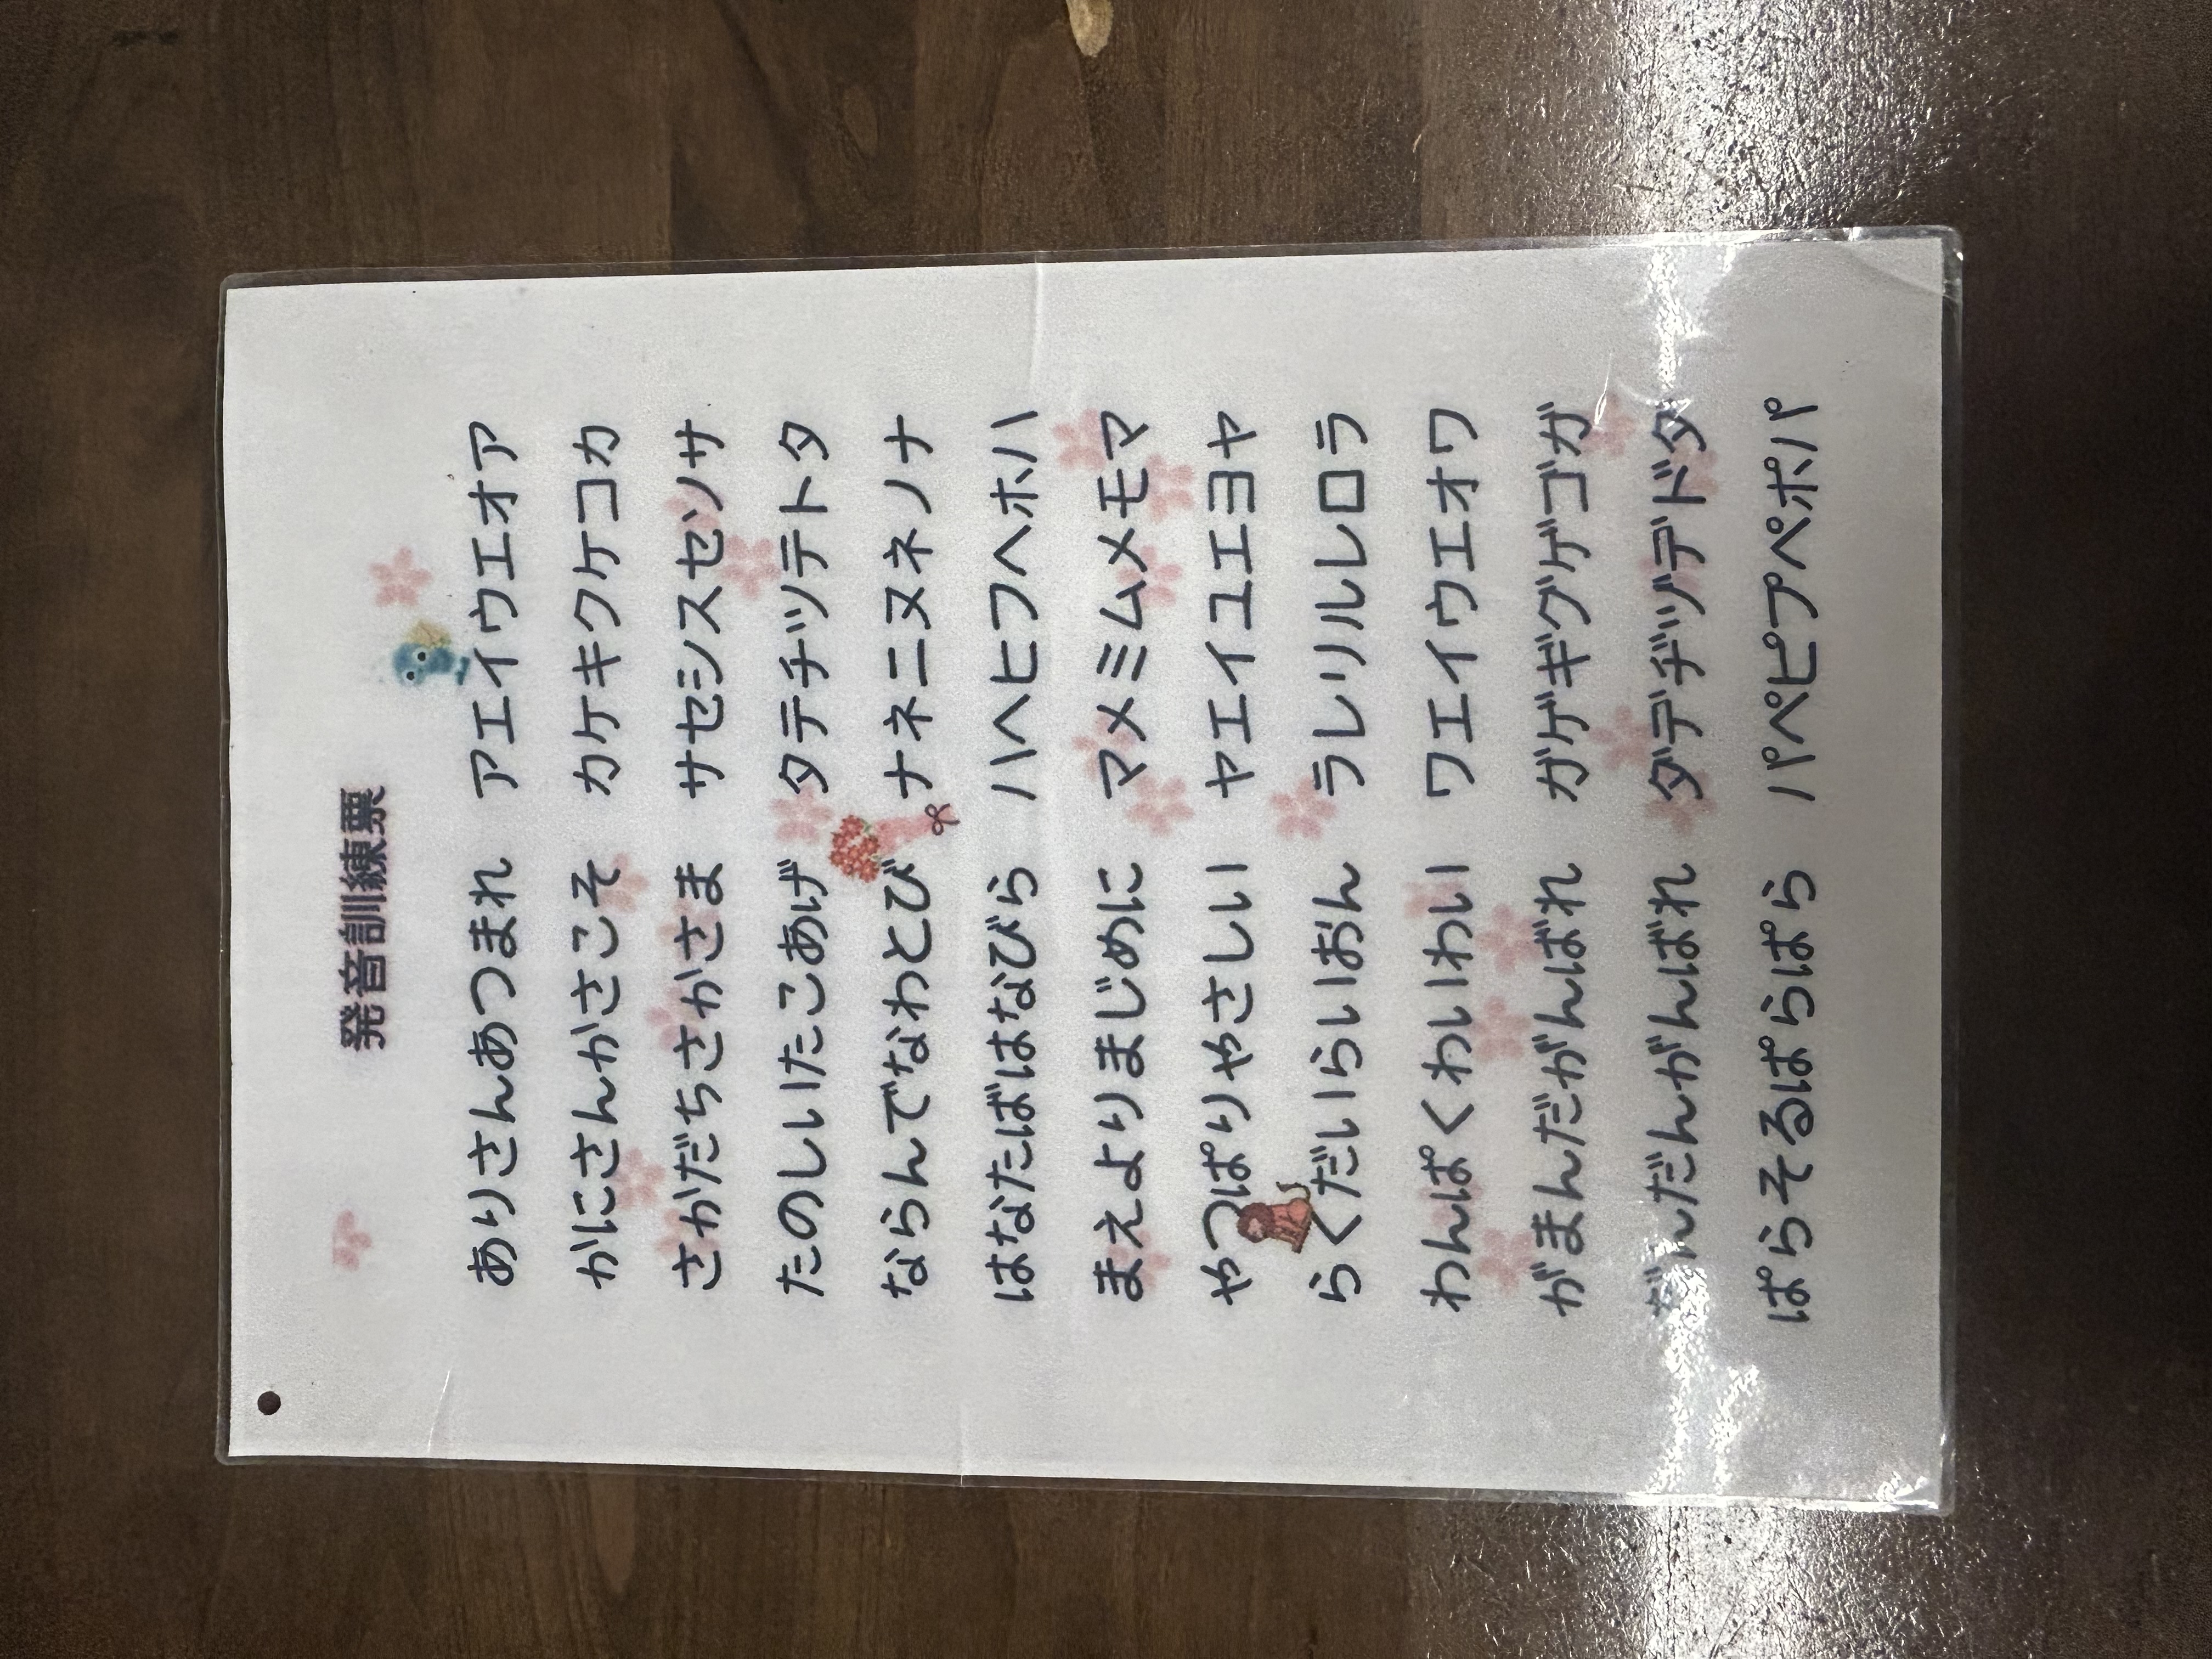 発音訓練票
ありさんあつまれ アエイウエオア
かにさんかさこそ カケキクケコカ
さかだちさかさま サセシスセソサ
たのしいたこあげ タテチツテトタ
ならんでなわとび ナネニヌネノナ
はなたばはなびら ハヘヒフヘホハ
まえよりまじめに マメミムメモマ
やつぱりやさしい ヤエイユエヨヤ
らくだいらいおん ラレリルレロラ
わんぱくわいわい ワエイウエオワ
がまんだがんばれ ガゲギグゲゴガ
だんだんがんばれ ダデヂヅデドダ
ぱらそるぱらぱら パペピプペポパ